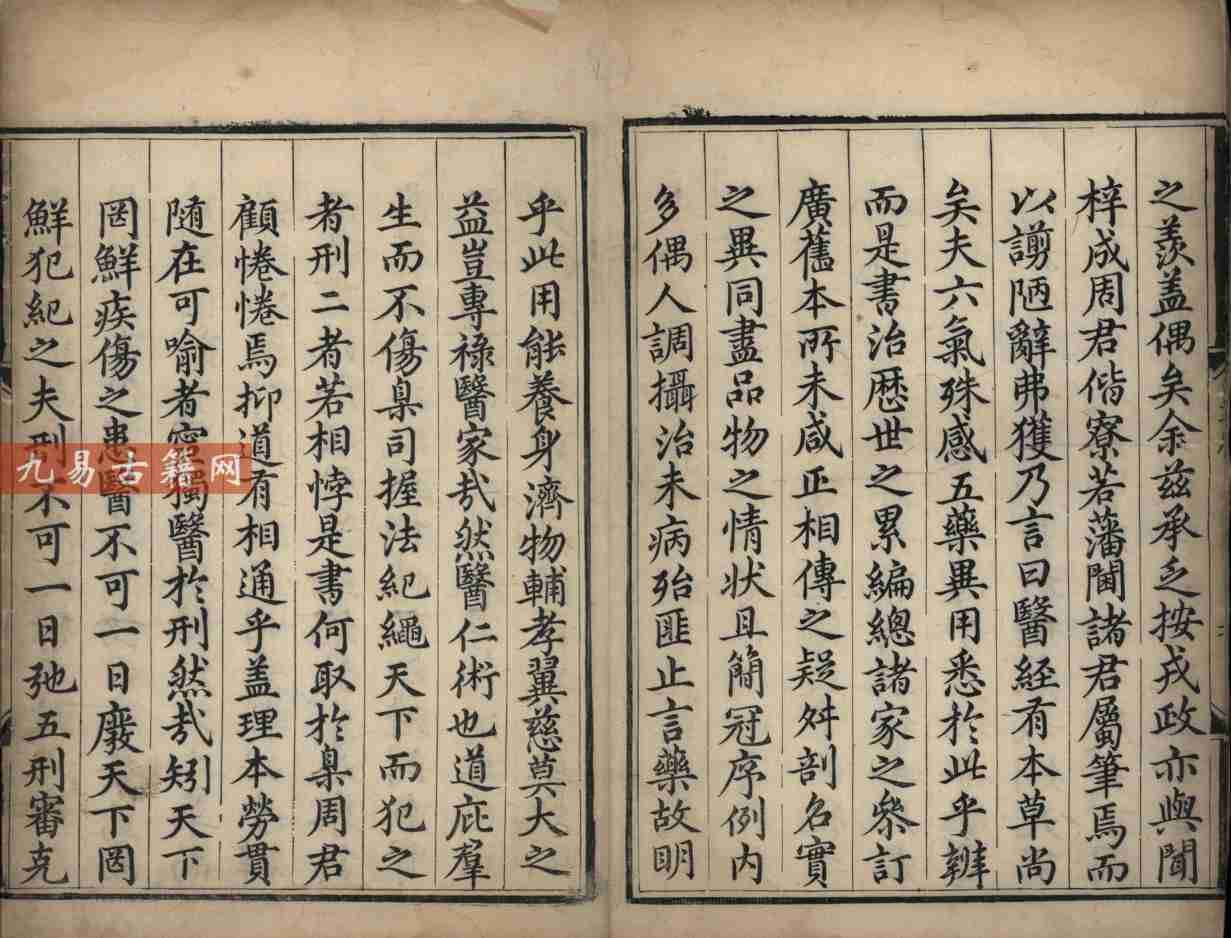 之羨盖偶矣余兹承乏按戎政亦與聞
梓成周君偕寮若藩閫諸君屬筆焉而
以謭陋辭弗獲乃言曰醫經有本草尚
矣夫六氣殊感五藥異用悉於此乎辨
而是書治歷世之累編總諸家之叅訂
廣舊本所未咸正相傳之疑舛剖名實
之異同盡品物之情狀且簡冠序例内
多偶人調攝治未病殆匪止言藥故明
乎此用能養身濟物輔孝翼慈莫大之
益豈專祿醫家㢤然醫仁術也道庇羣
生而不傷臬司握法紀繩天下而犯之
者刑二者若相悖是書何取於臬周君
顧惓惓焉抑道有相通乎盖理本勞貫
随在可喻者寕獨醫於刑然㢤矧天下
罔鮮疾傷之患醫不可一日廢天下罔
鮮犯紀之夫刑不可一日弛五刑審克
九易古籍网